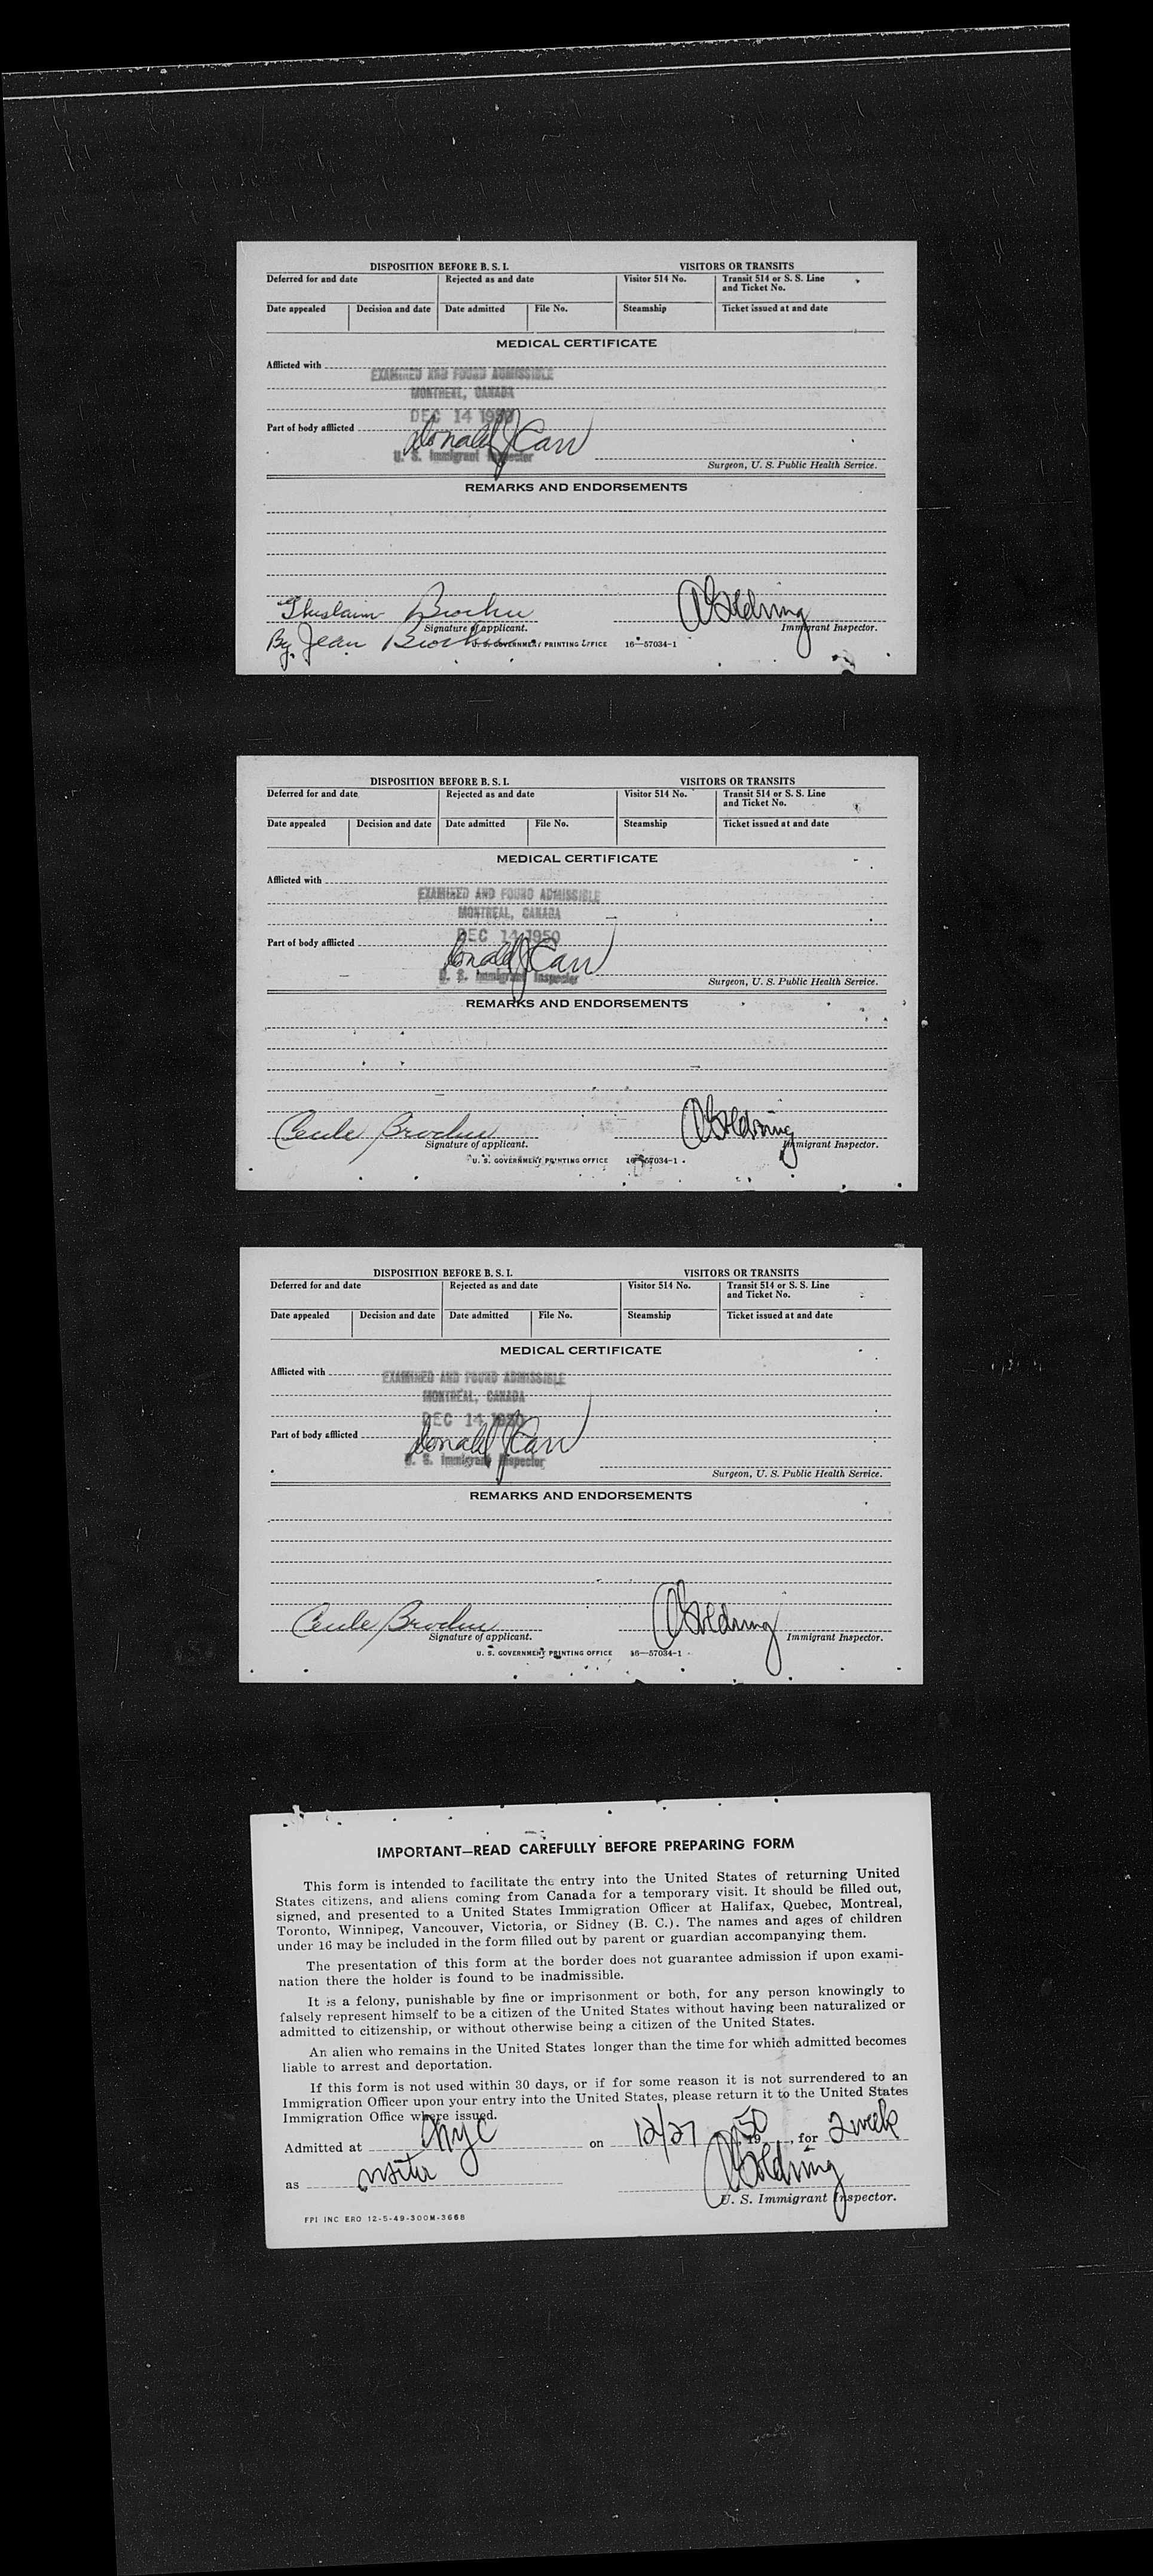 DISPOSITION BEFORE B. S. I. VISITORS OR TRANSITS
Deferred for and date Rejected as and date Visitor 514 No. Transit 514 or S. S. Line and Ticket No.
Date appealed Decision and date Date admitted File No. Steamship Ticket issued at and date
MEDICAL CERTIFICATE
Afflicted with
EXAMINED AND FOUND ADMISSIBLE
MONTREAL, CANADA
DEC 14 1950
Part of body afflicted Donald J Carr
U. S. Immigrant Inspector
Surgeon, U. S. Public Health Service.
REMARKS AND ENDORSEMENTS
Ghislain Brochu
Signature of applicant. Immigrant Inspector.
By Jean Brochu U. S. GOVERNMENT PRINTING OFFICE 16—57034-1
DISPOSITION BEFORE B. S. I. VISITORS OR TRANSITS
Deferred for and date Rejected as and date Visitor 514 No. Transit 514 or S. S. Line and Ticket No.
Date appealed Decision and date Date admitted File No. Steamship Ticket issued at and date
MEDICAL CERTIFICATE
Afflicted with
EXAMINED AND FOUND ADMISSIBLE
MONTREAL, CANADA
DEC 14 1950
Part of body afflicted Donald J Carr
U. S. Immigrant Inspector
Surgeon, U. S. Public Health Service.
REMARKS AND ENDORSEMENTS
Cecile Brochu
Signature of applicant. Immigrant Inspector.
U. S. GOVERNMENT PRINTING OFFICE 16—57034-1
DISPOSITION BEFORE B. S. I. VISITORS OR TRANSITS
Deferred for and date Rejected as and date Visitor 514 No. Transit 514 or S. S. Line and Ticket No.
Date appealed Decision and date Date admitted File No. Steamship Ticket issued at and date
MEDICAL CERTIFICATE
Afflicted with
EXAMINED AND FOUND ADMISSIBLE
MONTREAL, CANADA
DEC 14 1950
Part of body afflicted Donald J Carr
U. S. Immigrant Inspector
Surgeon, U. S. Public Health Service.
REMARKS AND ENDORSEMENTS
Cecile Brochu
Signature of applicant. Immigrant Inspector.
U. S. GOVERNMENT PRINTING OFFICE 16—57034-1
IMPORTANT—READ CAREFULLY BEFORE PREPARING FORM
This form is intended to facilitate the entry into the United States of returning United
States citizens, and aliens coming from Canada for a temporary visit. It should be filled out,
signed, and presented to a United States Immigration Officer at Halifax, Quebec, Montreal,
Toronto, Winnipeg, Vancouver, Victoria, or Sidney (B. C.). The names and ages of children
under 16 may be included in the form filled out by parent or guardian accompanying them.
The presentation of this form at the border does not guarantee admission if upon exami-
nation there the holder is found to be inadmissible.
It is a felony, punishable by fine or imprisonment or both, for any person knowingly to
falsely represent himself to be a citizen of the United States without having been naturalized or
admitted to citizenship, or without otherwise being a citizen of the United States.
An alien who remains in the United States longer than the time for which admitted becomes
liable to arrest and deportation.
If this form is not used within 30 days, or if for some reason it is not surrendered to an
Immigration Officer upon your entry into the United States, please return it to the United States
Immigration Office where issued.
Admitted at nyc on 12/27, 1950, for 2 week
as visitor
U. S. Immigrant Inspector.
FPI INC ERO 12-5-49-300M-3668